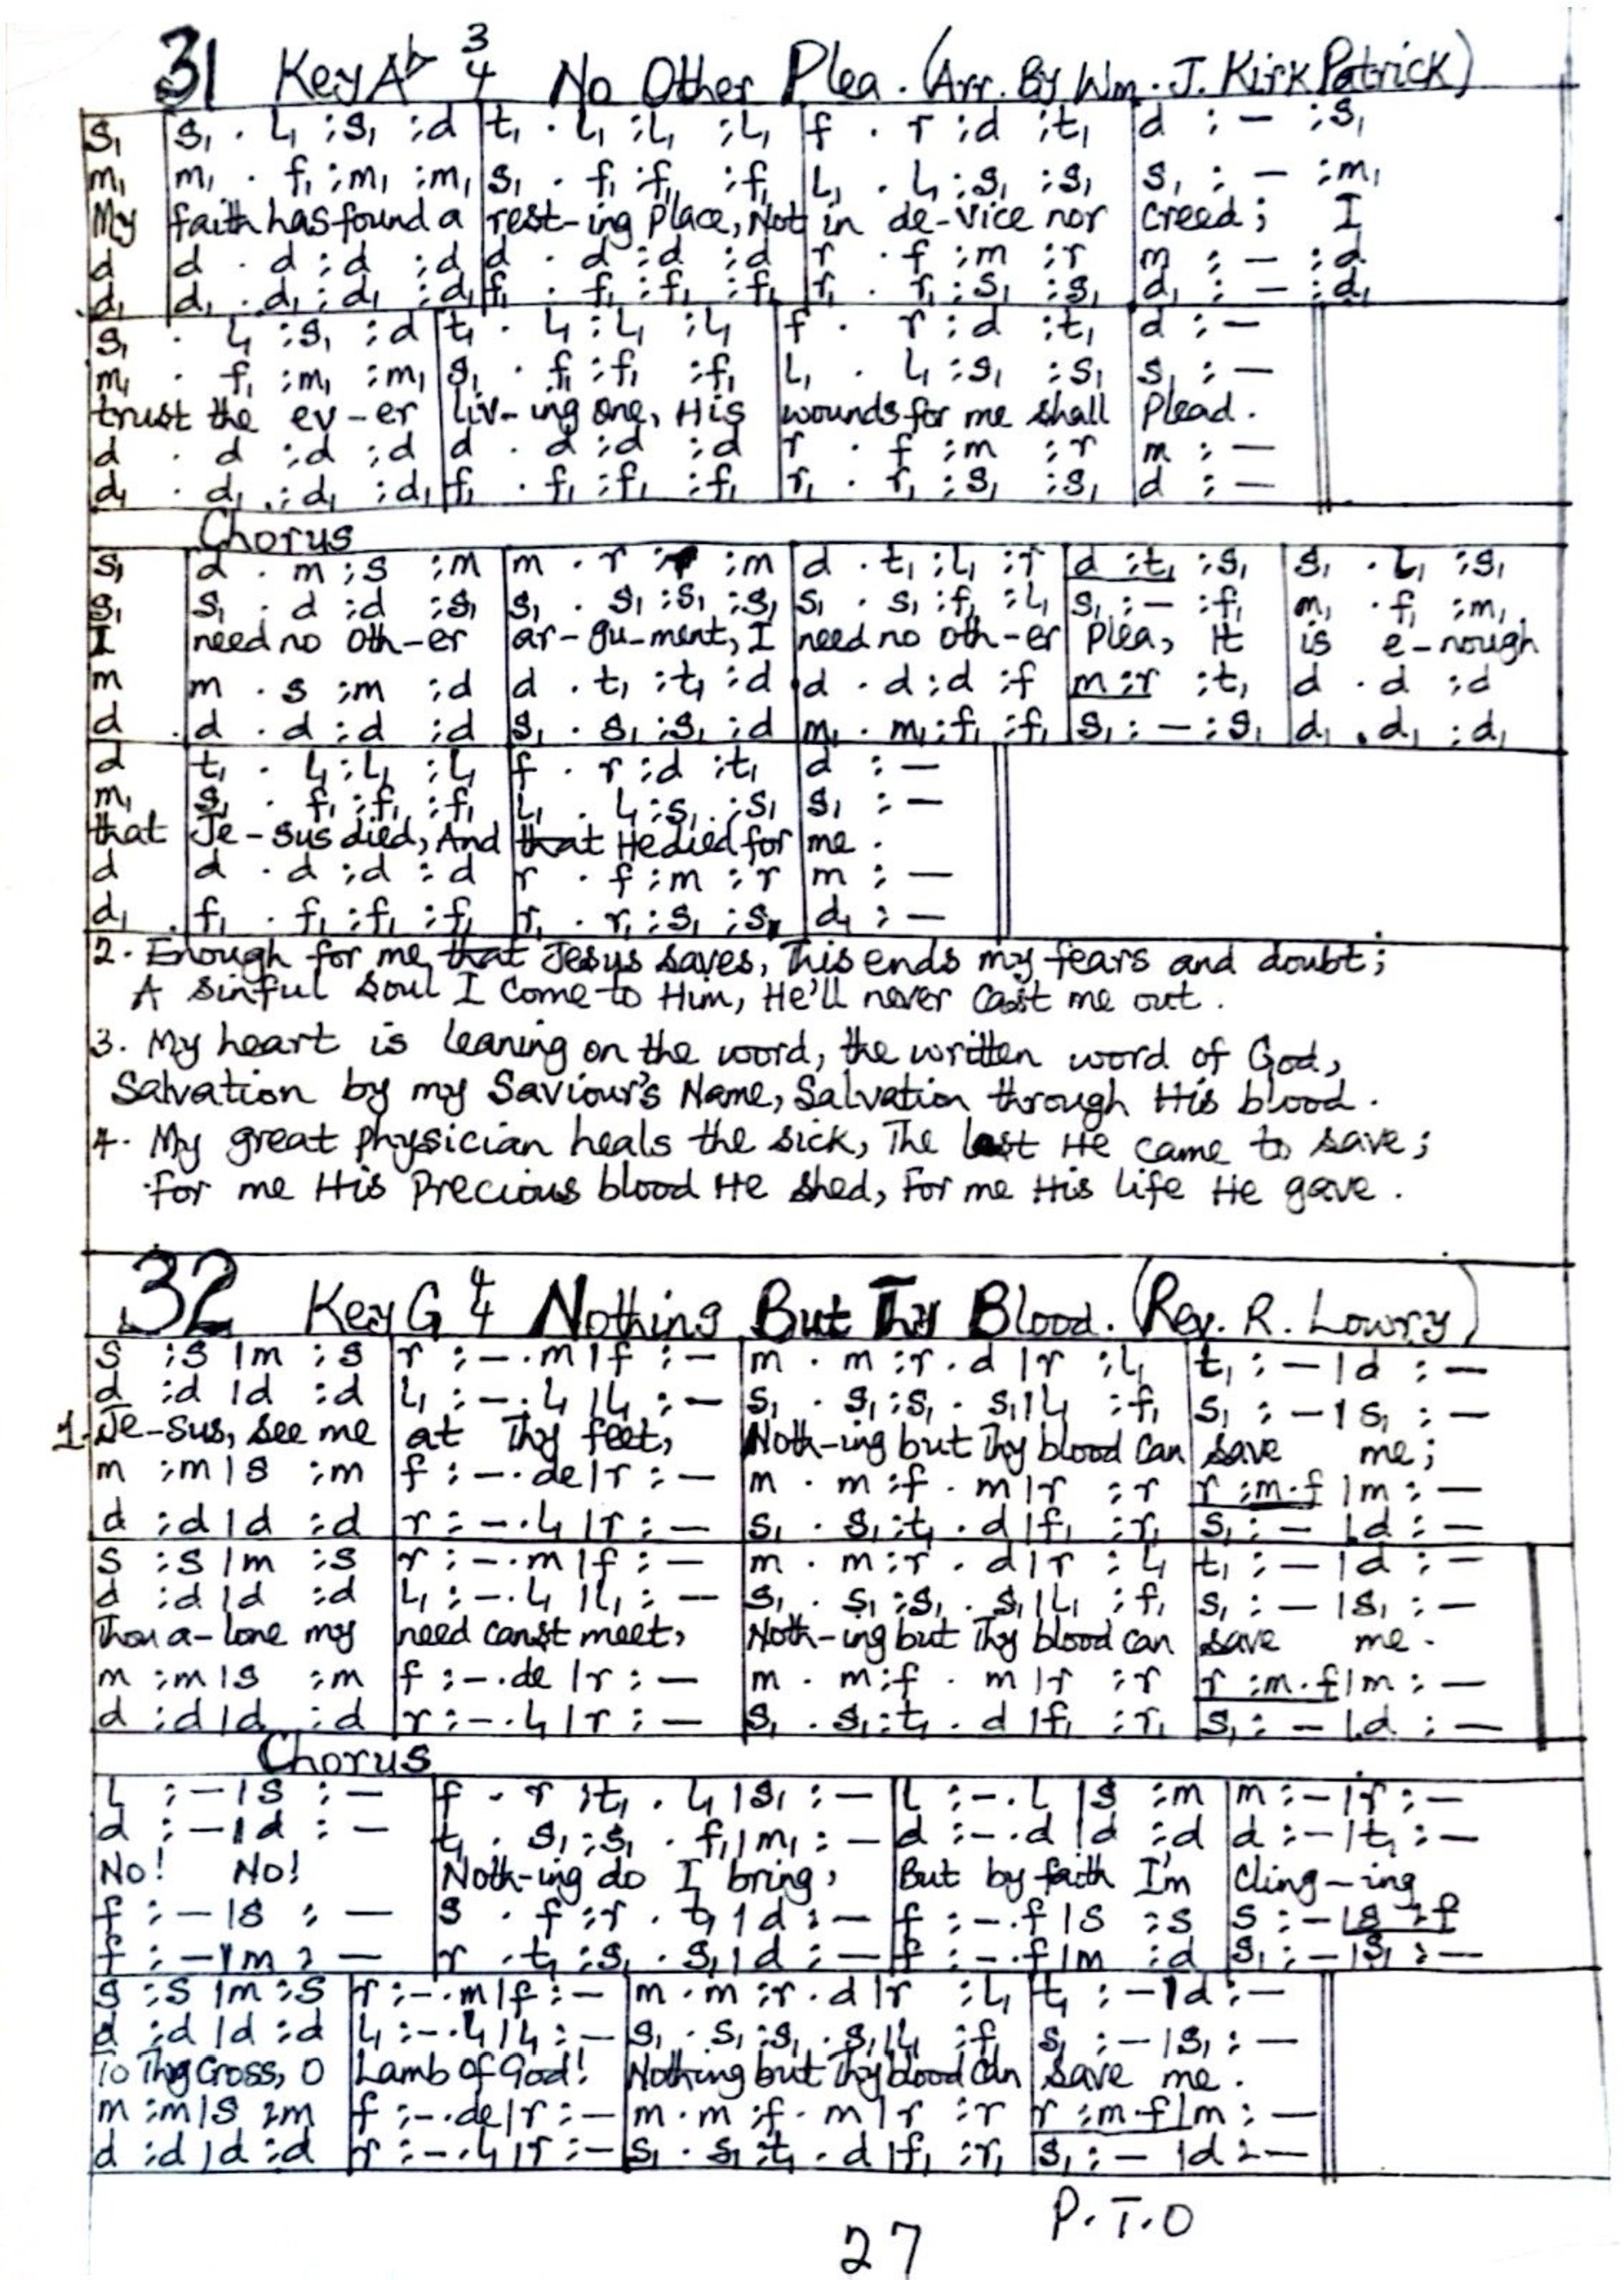 31 Key A♭ 3/4 No Other Plea. (Arr. By Wm. J. KirkPatrick)
s₁ | s₁ . l₁ :s₁ :d | t₁ . l₁ :l₁ :l₁ | f . r :d :t₁ | d : — :s₁
m₁ | m₁ . f₁ :m₁ :m₁ | s₁ . f₁ :f₁ :f₁ | l₁ . l₁ :s₁ :s₁ | s₁ : — :m₁
My | faith has found a | rest-ing place, Not | in de-vice nor | creed; I
d | d . d :d :d | d . d :d :d | r . f :m :r | m : — :d
d₁ | d₁ . d₁ :d₁ :d₁ | f₁ . f₁ :f₁ :f₁ | r₁ . r₁ :s₁ :s₁ | d₁ : — :d₁
s₁ . l₁ :s₁ :d | t₁ . l₁ :l₁ :l₁ | f . r :d :t₁ | d : —
m₁ . f₁ :m₁ :m₁ | s₁ . f₁ :f₁ :f₁ | l₁ . l₁ :s₁ :s₁ | s₁ : —
trust the ev-er | liv-ing one, His | wounds for me shall | Plead.
d . d :d :d | d . d :d :d | r . f :m :r | m : —
d₁ . d₁ :d₁ :d₁ | f₁ . f₁ :f₁ :f₁ | r₁ . r₁ :s₁ :s₁ | d : —
Chorus
s₁ | d . m :s :m | m . r :r :m | d . t₁ :l₁ :r | d :t₁ :s₁ | s₁ . l₁ :s₁
s₁ | s₁ . d :d :s₁ | s₁ . s₁ :s₁ :s₁ | s₁ . s₁ :f₁ :l₁ | s₁ : — :f₁ | m₁ . f₁ :m₁
I | need no oth-er | ar-gu-ment, I | need no oth-er | Plea, It | is e-nough
m | m . s :m :d | d . t₁ :t₁ :d | d . d :d :f | m :r :t₁ | d . d :d
d | d . d :d :d | s₁ . s₁ :s₁ :d | m₁ . m₁ :f₁ :f₁ | s₁ : — :s₁ | d₁ . d₁ :d₁
d | t₁ . l₁ :l₁ :l₁ | f . r :d :t₁ | d : —
m₁ | s₁ . f₁ :f₁ :f₁ | l₁ . l₁ :s₁ :s₁ | s₁ : —
that | Je-sus died, And | that He died for | me.
d | d . d :d :d | r . f :m :r | m : —
d₁ | f₁ . f₁ :f₁ :f₁ | r₁ . r₁ :s₁ :s₁ | d₁ : —
2. Enough for me, that Jesus saves, This ends my fears and doubt;
A sinful soul I come to Him, He'll never cast me out.
3. My heart is leaning on the word, the written word of God,
Salvation by my Saviour's Name, Salvation through His blood.
4. My great physician heals the sick, The lost He came to save;
For me His Precious blood He shed, For me His life He gave.
32 Key G 4/4 Nothing But Thy Blood. (Rev. R. Lowry)
s :s |m :s | r :—.m |f :— | m . m :r . d |r :l₁ | t₁ :— |d :—
d :d |d :d | l₁ :—.l₁ |l₁ :— | s₁ . s₁ :s₁ . s₁ |l₁ :f₁ | s₁ :— |s₁ :—
1. Je-sus, see me | at Thy feet, | Noth-ing but Thy blood can | save me;
m :m |s :m | f :—.de |r :— | m . m :f . m |r :r | r :m.f |m :—
d :d |d :d | r :—.l₁ |r :— | s₁ . s₁ :t₁ . d |f₁ :r₁ | s₁ :— |d :—
s :s |m :s | r :—.m |f :— | m . m :r . d |r :l₁ | t₁ :— |d :—
d :d |d :d | l₁ :—.l₁ |l₁ :— | s₁ . s₁ :s₁ . s₁ |l₁ :f₁ | s₁ :— |s₁ :—
Thou a-lone my | need canst meet, | Noth-ing but Thy blood can | save me.
m :m |s :m | f :—.de |r :— | m . m :f . m |r :r | r :m.f |m :—
d :d |d :d | r :—.l₁ |r :— | s₁ . s₁ :t₁ . d |f₁ :r₁ | s₁ :— |d :—
Chorus
l :— |s :— | f . r :t₁ . l₁ |s₁ :— | l :—.l |s :m | m :— |r :—
d :— |d :— | t₁ . s₁ :s₁ . f₁ |m₁ :— | d :—.d |d :d | d :— |t₁ :—
No! No! | Noth-ing do I bring, | But by faith I'm | cling-ing
f :— |s :— | s . f :r . t₁ |d :— | f :—.f |s :s | s :— |s :f
f :— |m :— | r . t₁ :s₁ . s₁ |d :— | f :—.f |m :d | s₁ :— |s₁ :—
s :s |m :s | r :—.m |f :— | m . m :r . d |r :l₁ | t₁ :— |d :—
d :d |d :d | l₁ :—.l₁ |l₁ :— | s₁ . s₁ :s₁ . s₁ |l₁ :f₁ | s₁ :— |s₁ :—
To Thy Cross, O | Lamb of God! | Nothing but Thy blood can | save me.
m :m |s :m | f :—.de |r :— | m . m :f . m |r :r | r :m.f |m :—
d :d |d :d | r :—.l₁ |r :— | s₁ . s₁ :t₁ . d |f₁ :r₁ | s₁ :— |d :—
P.T.O
27